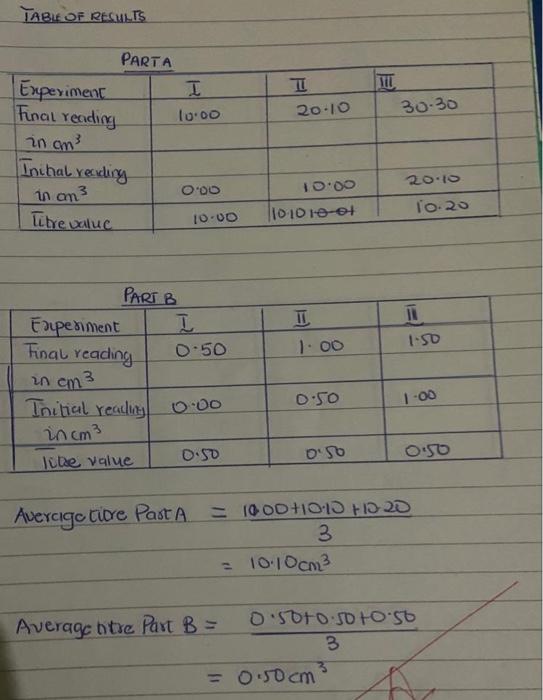 TABLE OF RESULTS
PART A
Experiment I II III
Final reading 10.00 20.10 30.30
in cm³
Initial reading
in cm³ 0.00 10.00 20.10
Titre value 10.00 10.10 10.01 10.20
PART B
Experiment I II III
Final reading 0.50 1.00 1.50
in cm³
Initial reading 0.00 0.50 1.00
in cm³
Titre value 0.50 0.50 0.50
Average titre Part A = 10.00+10.10+10.20
3
= 10.10cm³
Average titre Part B = 0.50+0.50+0.50
3
= 0.50cm³